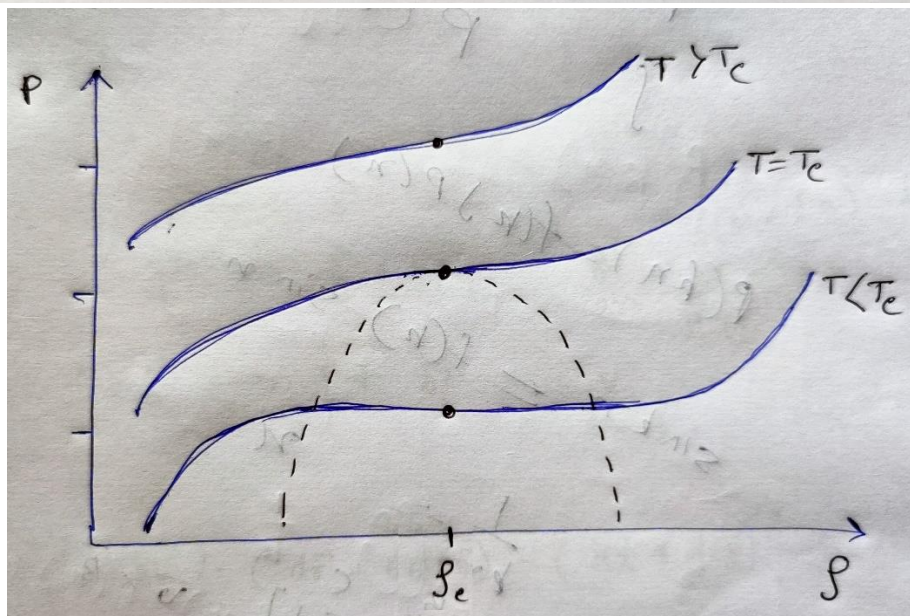 P
T > Tc
T = Tc
T < Tc
ρc
ρ